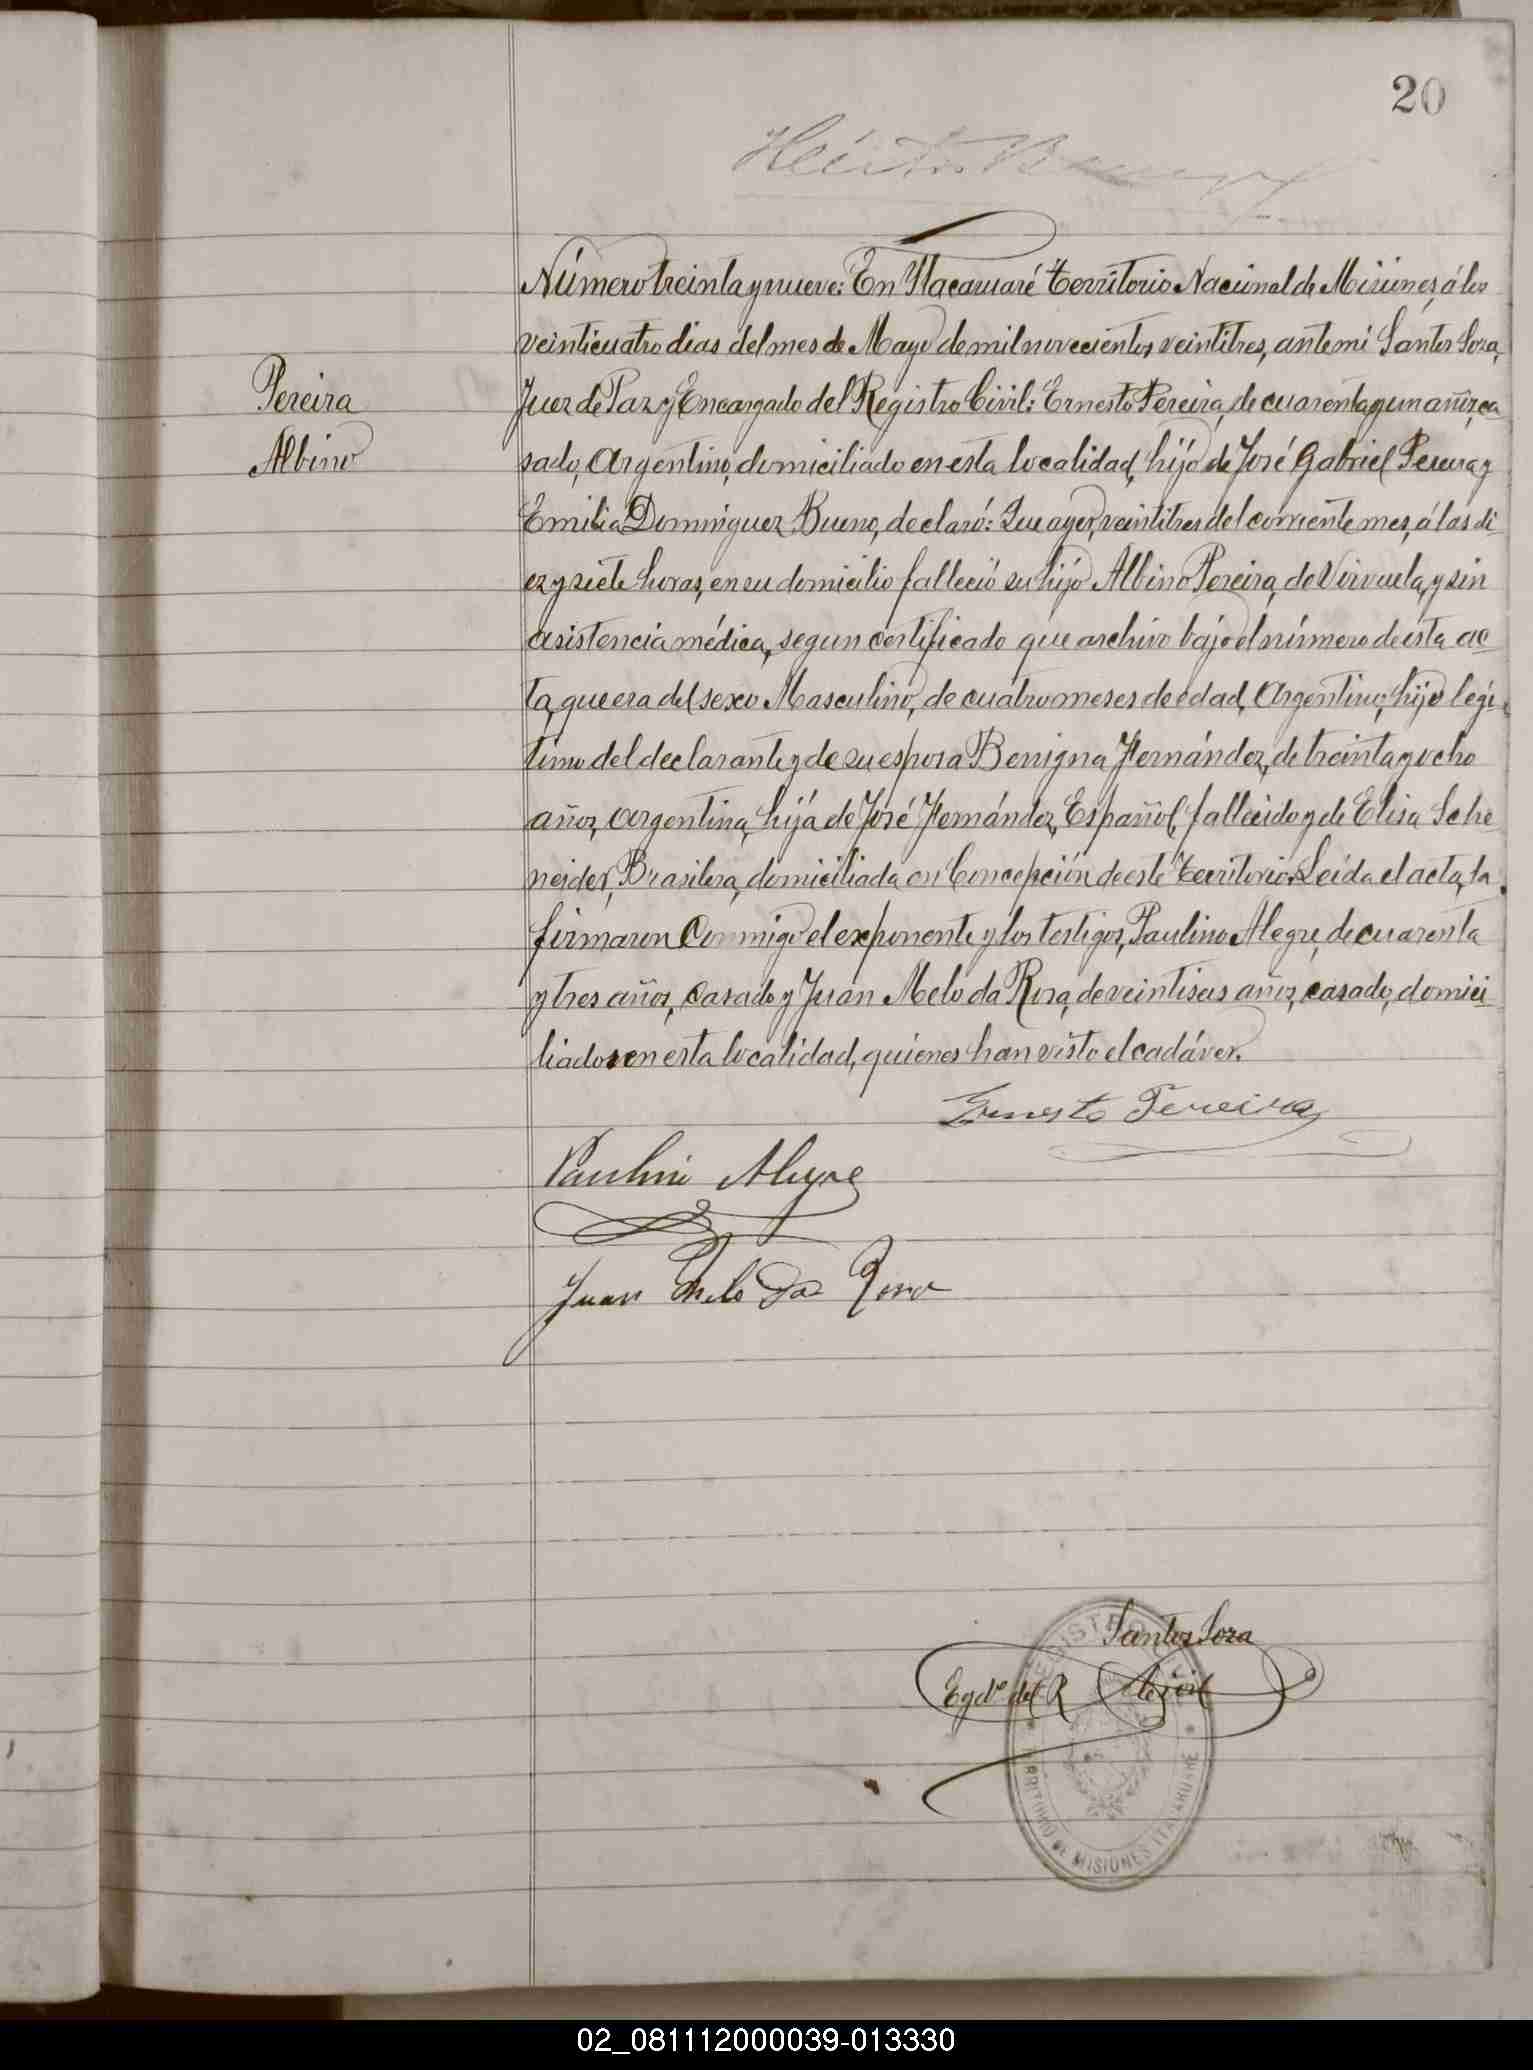 20
Número treinta y nueve: En Itacaruaré Territorio Nacional de Misiones, á los
veinticuatro dias del mes de Mayo de mil novecientos veintitres, ante mi Santos Soza,
Pereira
Juez de Paz y Encargado del Registro Civil: Ernesto Pereira, de cuarenta y un años, ca
Albino
sado, Argentino, domiciliado en esta localidad, hijo de José Gabriel Pereira y
Emilia Dominguez Bueno, declaró: Que ayer, veintitres del corriente mes, á las di-
ez y siete horas, en su domicilio falleció su hijo Albino Pereira, de Virvuela, y sin
asistencia médica, segun certificado que archivo bajo el número de esta ac
ta, que era del sexo Masculino, de cuatro meses de edad, Argentino; hijo legi-
timo del declarante y de su esposa Benigna Fernández, de treinta y ocho
años, Argentina, hija de José Fernández, Español, fallecido y de Elisa Sche
neider, Brasilera, domiciliada en Concepción de este Territorio. Leida el acta, la
firmaron conmigo el exponente y los testigos, Paulino Alegre, de cuarenta
y tres años, casado y Juan Melo da Rosa, de veintiseis años, casado, domici
liados en esta localidad, quienes han visto el cadáver.
Ernesto Pereira
Paulino Alegre
Juan Melo Da Rosa
Santos Soza
Egdo del R Civil
REGISTRO
TERRITORIO DE MISIONES ITACARUARÉ
02_081112000039-013330